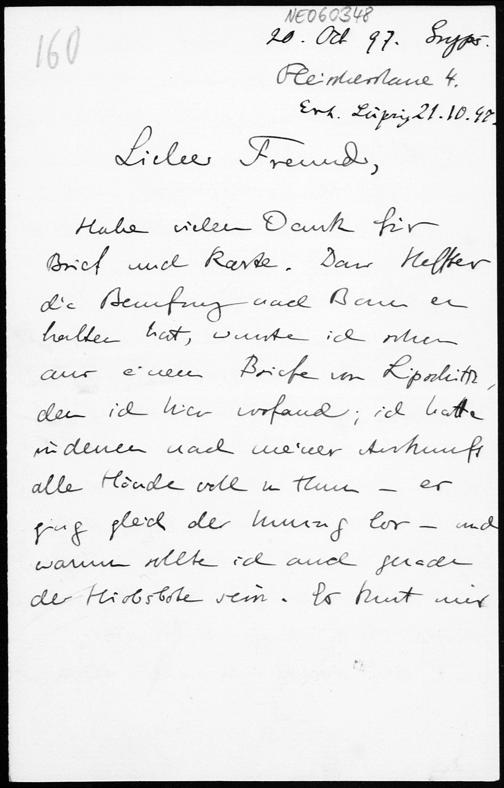 NE060348
160
20. Oct 97. Gryps.
Fleischerstrasse 4.
Erh. Leipzig 21.10.97.
Lieber Freund,
Habe vielen Dank für
Brief und Karte. Dass Heffter
die Berufung nach Bonn er
halten hat, wusste ich schon
aus einem Briefe von Lipschitz,
den ich hier vorfand; ich hatte
indessen nach meiner Ankunft
alle Hände voll zu thun – es
ging gleich der Umzug los – und
warum sollte ich auch gerade
der Hiobsbote sein. Es thut mir